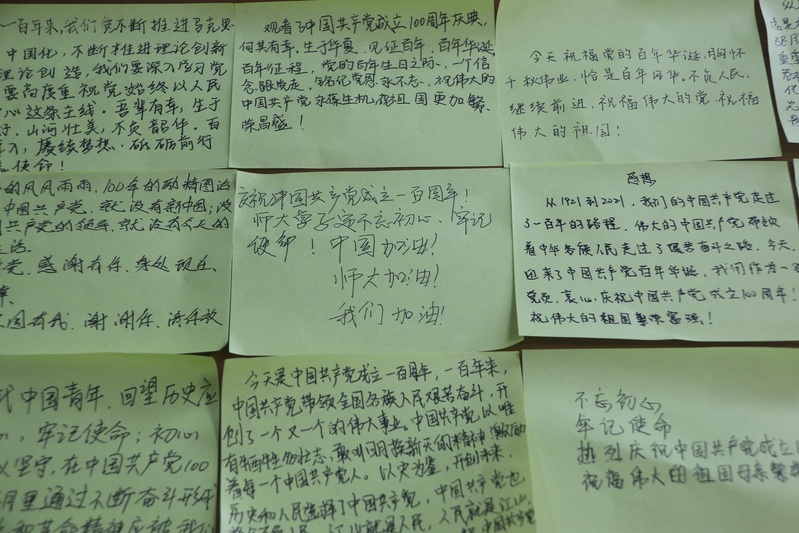 一百年来,我们党不断推进马克思
中国化,不断推进理论创新
理论创造,我们要深入学习党
要高度重视党始终以人民
心这条主线。吾辈有幸,生于
山河壮美,不负韶华。百
赓续梦想,砥砺前行
使命!
观看了中国共产党成立100周年庆典,
何其有幸。生于华夏,见证百年,百年华诞
百年征程,党的百年生日之际,一个信
念跟党走,铭记党恩永不忘,祝伟大的
中国共产党永葆生机,祝祖国更加繁
荣昌盛!
今天祝福党的百年华诞,胸怀
千秋伟业,恰是百年风华。不负人民,
继续前进,祝福伟大的党,祝福
伟大的祖国!
的风风雨雨,100年的
中国共产党,就没有新中国;没
共产党的领导,就没有人民的
生活。
党,感谢有你,身处现在,
强国有我,谢谢你,请你放
庆祝中国共产党成立一百周年!
师大学子定不忘初心、牢记
使命!中国加油!
师大加油!
我们加油!
感想
从1921到2021,我们的中国共产党走过
了一百年的路程,伟大的中国共产党带领
着中华各族人民走过了艰苦奋斗之路,今天,
迎来了中国共产党百年华诞,我们作为一名
党员,衷心庆祝中国共产党成立100周年!
祝伟大的祖国繁荣富强!
代中国青年,回望历史应
心,牢记使命;初心
以坚守,在中国共产党100
月里通过不断奋斗形成
和革命精神应被我们
今天是中国共产党成立一百周年,一百年来,
中国共产党带领全国各族人民艰苦奋斗,开
创了一个又一个的伟大事业,中国共产党以"唯
有牺牲多壮志,敢叫日月换新天"的精神激励
着每一个中国共产党人。以史为鉴,开创未来,
历史和人民选择了中国共产党,中国共产党也
江山就是人民,人民就是江山,
中国共产党
不忘初心
牢记使命
热烈庆祝中国共产党成立1
祝福伟大的祖国母亲繁荣